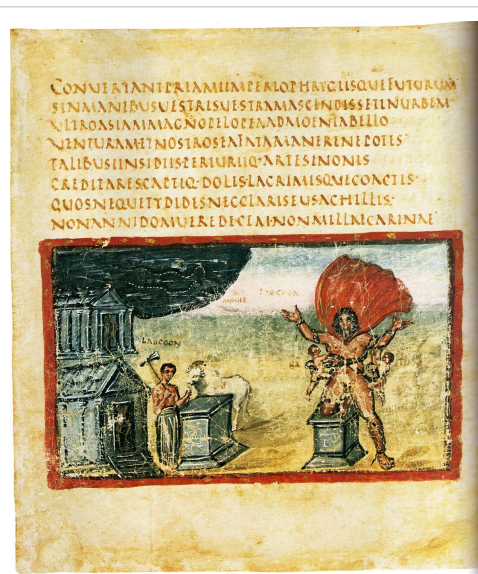 CONVERTANTPRIAMIIMPERIOPHRYGIISQUEFUTURUM
SINMANIBUSUESTRISUESTRAMASCENDISSETINURBEM
ULTROASIAMMAGNOPELOPEAADMOENIABELLO
VENTURAMETNOSTROSEAFATAMANERENEPOTES
TALIBUSINSIDIISPERIURIIQ·ARTESINONIS
CREDITARESCAPTIQ·DOLISLACRIMISQUECOACTIS·
QUOSNEQUETYDIDESNECCLARISEUSACHILLIS·
NONANNIDOMUEREDECEM·NONMILLECARINAE
LAOCOON
ANGUES
LAOCOON
NA